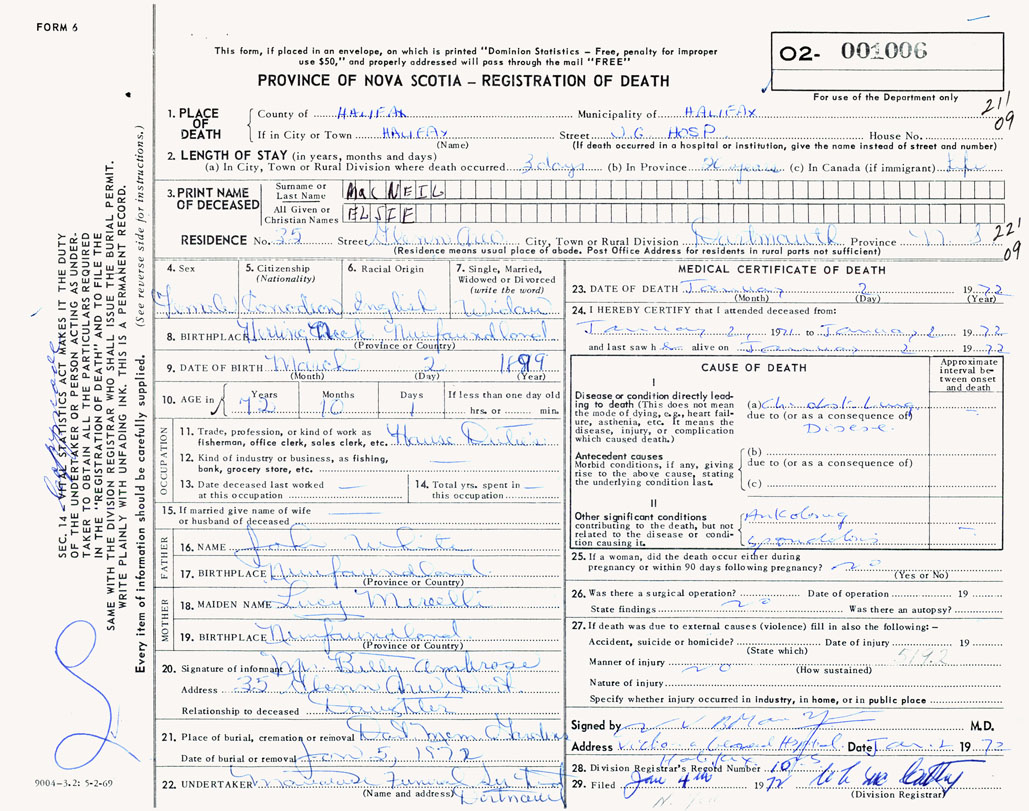 FORM 6
This form, if placed in an envelope, on which is printed "Dominion Statistics – Free, penalty for improper
use $50," and properly addressed will pass through the mail "FREE"
PROVINCE OF NOVA SCOTIA – REGISTRATION OF DEATH
02- 001006
For use of the Department only
211
09
1. PLACE OF DEATH
County of HALIFAX Municipality of HALIFAX
If in City or Town HALIFAX Street V.G. HOSP House No.
(Name) (If death occurred in a hospital or institution, give the name instead of street and number)
2. LENGTH OF STAY (in years, months and days)
(a) In City, Town or Rural Division where death occurred 3 days (b) In Province years (c) In Canada (if immigrant) Life
3. PRINT NAME OF DECEASED
Surname or Last Name MacNEIL
All Given or Christian Names ELSIE
RESIDENCE No. 35 Street City, Town or Rural Division Dartmouth Province N S
(Residence means usual place of abode. Post Office Address for residents in rural parts not sufficient)
221
09
4. Sex Female
5. Citizenship (Nationality) Canadian
6. Racial Origin English
7. Single, Married, Widowed or Divorced (write the word) Widow
8. BIRTHPLACE Herring Neck, Newfoundland
(Province or Country)
9. DATE OF BIRTH March 2 1899
(Month) (Day) (Year)
10. AGE in Years 72 Months 10 Days 1 If less than one day old
hrs. or min.
OCCUPATION
11. Trade, profession, or kind of work as fisherman, office clerk, sales clerk, etc. House Duties
12. Kind of industry or business, as fishing, bank, grocery store, etc. —
13. Date deceased last worked at this occupation —
14. Total yrs. spent in this occupation —
15. If married give name of wife or husband of deceased —
FATHER
16. NAME John White
17. BIRTHPLACE Newfoundland
(Province or Country)
MOTHER
18. MAIDEN NAME Lucy
19. BIRTHPLACE Newfoundland
(Province or Country)
20. Signature of informant Billy Ambrose
Address 35 Dart
Relationship to deceased Daughter
21. Place of burial, cremation or removal Dart Mem Gardens
Date of burial or removal Jan 5, 1972
22. UNDERTAKER Funeral
(Name and address) Dartmouth
MEDICAL CERTIFICATE OF DEATH
23. DATE OF DEATH January 2 1972
(Month) (Day) (Year)
24. I HEREBY CERTIFY that I attended deceased from:
January 2 1971 to January 2 1972
and last saw h alive on January 2 1972
CAUSE OF DEATH
Approximate interval between onset and death
I
Disease or condition directly leading to death (This does not mean the mode of dying, e.g., heart failure, asthenia, etc. It means the disease, injury, or complication which caused death.)
(a) Lung
due to (or as a consequence of)
Disease
Antecedent causes
Morbid conditions, if any, giving rise to the above cause, stating the underlying condition last.
(b)
due to (or as a consequence of)
(c)
II
Other significant conditions contributing to the death, but not related to the disease or condition causing it.
Ankylosing
25. If a woman, did the death occur either during
pregnancy or within 90 days following pregnancy? no
(Yes or No)
26. Was there a surgical operation? Date of operation 19
State findings no Was there an autopsy?
27. If death was due to external causes (violence) fill in also the following: –
Accident, suicide or homicide? Date of injury 19
(State which)
519.2
Manner of injury no
(How sustained)
Nature of injury
Specify whether injury occurred in industry, in home, or in public place
Signed by M.D.
Address Victoria General Hospital Date Jan. 2 1972
Halifax N.S.
28. Division Registrar's Record Number 10
29. Filed Jan 4th 1972
(Division Registrar)
SEC. 14 – VITAL STATISTICS ACT MAKES IT THE DUTY
OF THE UNDERTAKER OR PERSON ACTING AS UNDER-
TAKER TO OBTAIN ALL THE PARTICULARS REQUIRED
IN THE "REGISTRATION OF DEATH" AND TO FILE THE
SAME WITH THE DIVISION REGISTRAR WHO SHALL ISSUE THE BURIAL PERMIT.
WRITE PLAINLY WITH UNFADING INK. THIS IS A PERMANENT RECORD.
Every item of information should be carefully supplied. (See reverse side for instructions.)
9004-3.2: 5-2-69